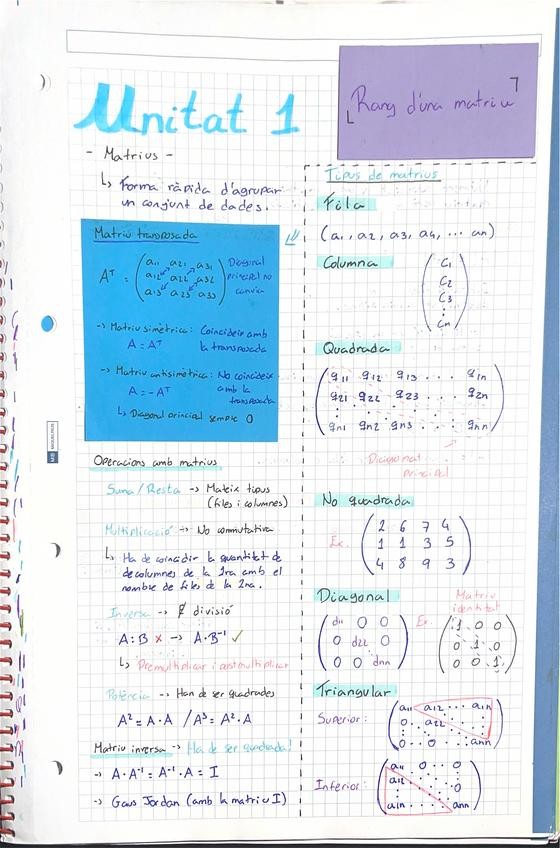 Unitat 1
Rang d'una matriu
- Matrius -
↳ Forma ràpida d'agrupar
un conjunt de dades.
Matriu transposada
Aᵀ = (a₁₁ a₂₁ a₃₁
a₁₂ a₂₂ a₃₂
a₁₃ a₂₃ a₃₃)
Diagonal
principal no
canvia
→ Matriu simètrica: Coincideix amb
A = Aᵀ la transposada
→ Matriu antisimètrica: No coincideix
A = -Aᵀ amb la
transposada
↳ Diagonal principal sempre 0
Operacions amb matrius
Suma/Resta → Mateix tipus
(files i columnes)
Multiplicació → No commutativa
↳ Ha de coincidir la quantitat de
de columnes de la 1ra amb el
nombre de files de la 2na.
Inversa → ∄ divisió
A:B × → A·B⁻¹ ✓
↳ Premultiplicar i postmultiplicar
Potència → Han de ser quadrades
A² = A·A / A³ = A²·A
Matriu inversa → Ha de ser quadrada!
→ A·A⁻¹ = A⁻¹·A = I
→ Gaus Jordan (amb la matriu I)
Tipus de matrius
Fila
(a₁, a₂, a₃, a₄, ... an)
Columna
(C₁
C₂
C₃
⋮
Cn)
Quadrada
(a₁₁ a₁₂ a₁₃ . . . a₁n
a₂₁ a₂₂ a₂₃ . . . a₂n
⋮
an₁ an₂ an₃ . . . ann)
Diagonal
principal
No quadrada
Ex. (2 6 7 4
1 1 3 5
4 8 9 3)
Diagonal
(d₁₁ 0 0
0 d₂₂ 0
0 0 dnn)
Ex. Matriu
identitat
(1 0 0
0 1 0
0 0 1)
Triangular
Superior: (a₁₁ a₁₂ ... a₁n
0 . a₂₂ ...
0 .. 0 ... ann)
Inferior: (a₁₁ 0 .. 0
a₁₂ ... 0
a₁n ... ann)